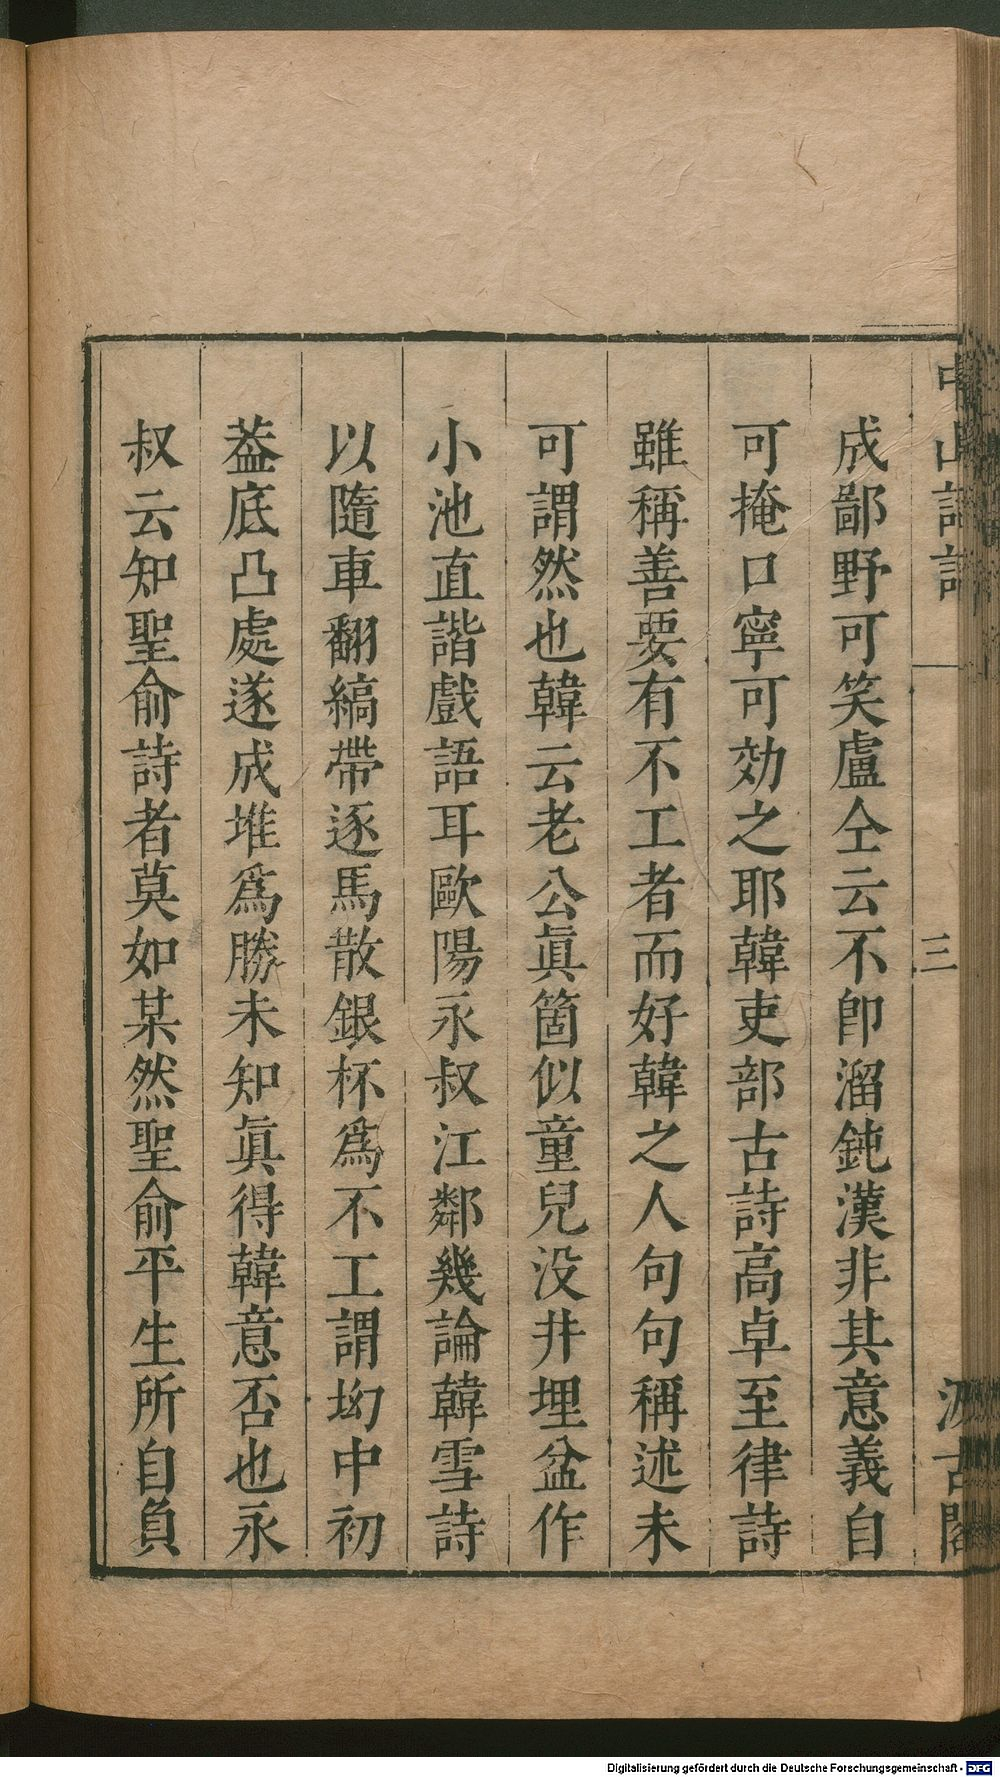 中山詩話
三
汲古閣
成鄙野可笑盧仝云不卽溜鈍漢非其意義自
可掩口寧可効之耶韓吏部古詩高卓至律詩
雖稱善要有不工者而好韓之人句句稱述未
可謂然也韓云老公眞箇似童兒没井埋盆作
小池直諧戲語耳歐陽永叔江鄰幾論韓雪詩
以隨車翻縞帶逐馬散銀杯爲不工謂坳中初
蓋底凸處遂成堆爲勝未知眞得韓意否也永
叔云知聖俞詩者莫如某然聖俞平生所自負
Digitalisierung gefördert durch die Deutsche Forschungsgemeinschaft - DFG